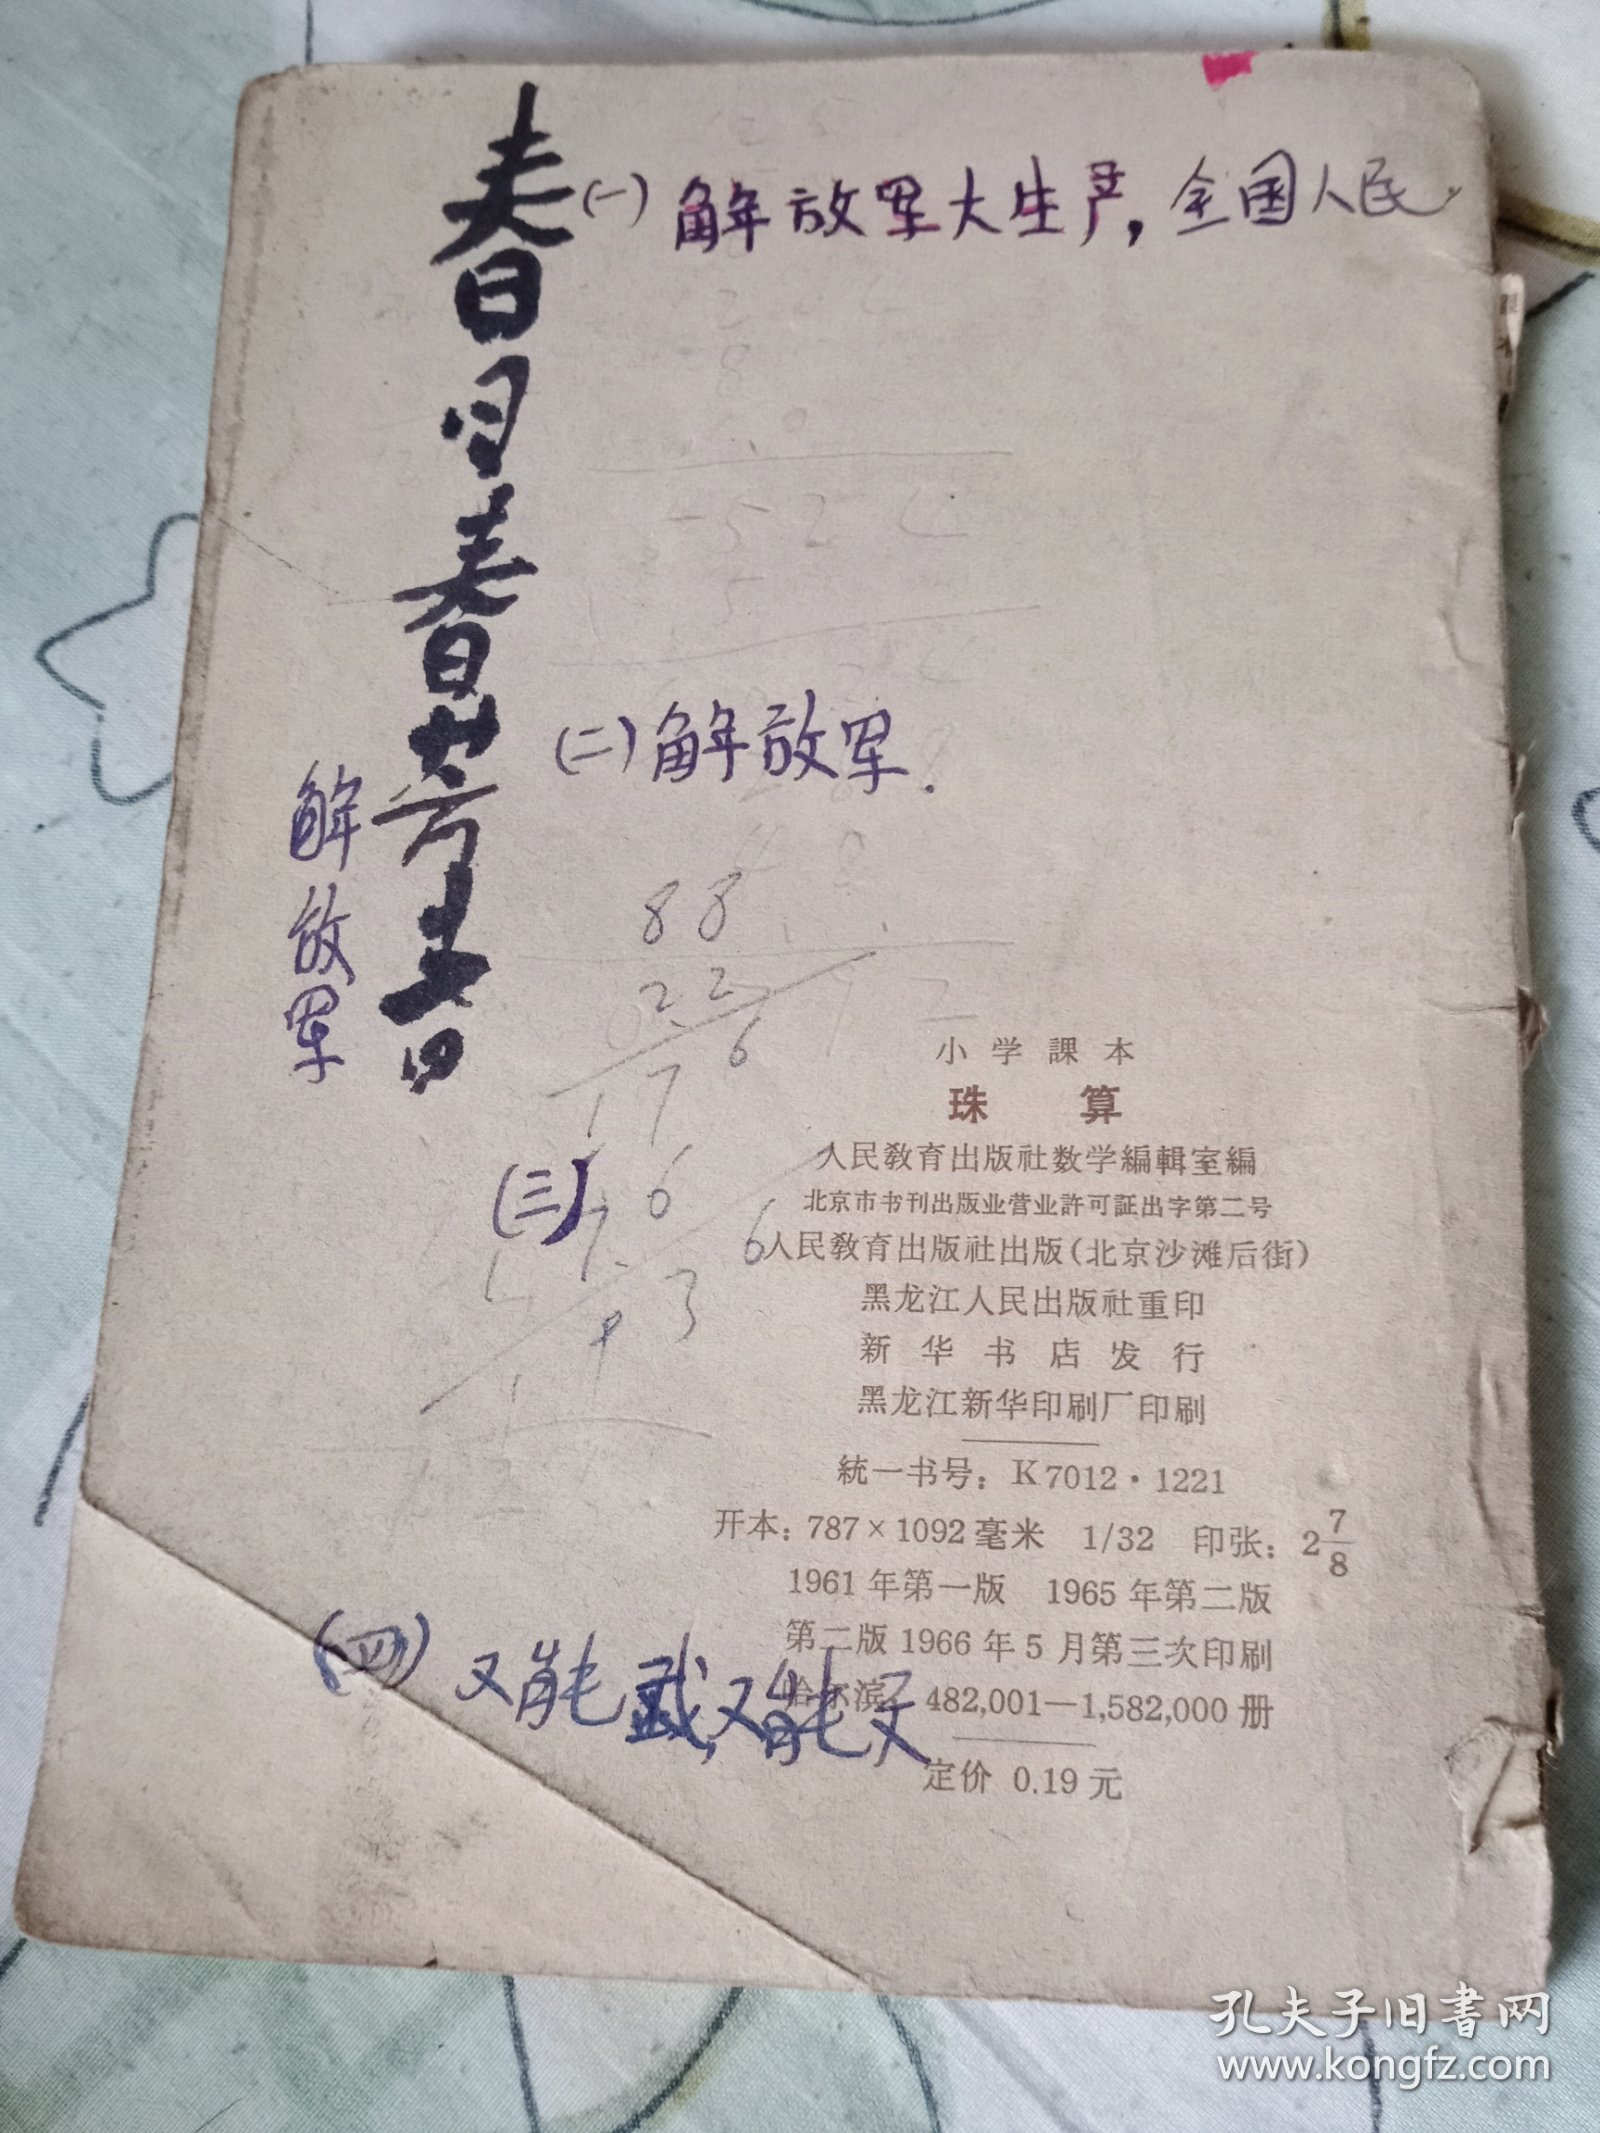 春日春芳
(一)解放军大生产,全国人民
(二)解放军.
解放军
88
22
6
17
(三)
6
6
3
小学課本
珠算
人民教育出版社数学編輯室編
北京市书刊出版业营业許可証出字第二号
人民教育出版社出版(北京沙滩后街)
黑龙江人民出版社重印
新华书店发行
黑龙江新华印刷厂印刷
統一书号:K7012·1221
开本:787×1092毫米 1/32 印张:2 7/8
1961年第一版 1965年第二版
第二版1966年5月第三次印刷
哈尔滨 482,001—1,582,000册
定价 0.19元
(四)又能武,又能文
孔夫子旧書网
www.kongfz.com